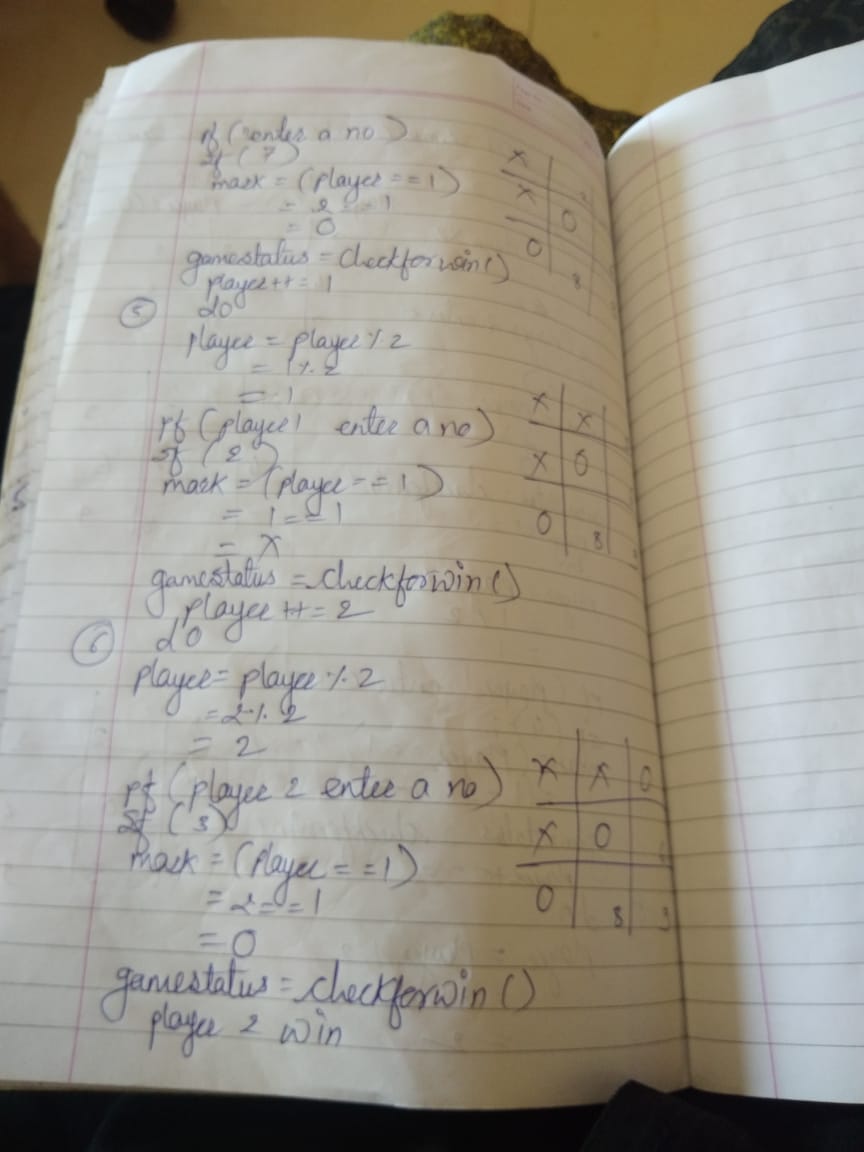 pf (enter a no)
sf (7)
mark = (player == 1)
= 2 == 1
= 0
gamestatus = checkforwin()
player++ = 1
X
X
0
0
8
5 do
player = player % 2
= 1 % 2
= 1
pf (player 1 enter a no)
sf (2)
mark = (player == 1)
= 1 == 1
= X
gamestatus = checkforwin()
player ++ = 2
X X
X 0
0 8
6 do
player = player % 2
= 2 % 2
= 2
pf (player 2 enter a no)
sf (3)
mark = (player == 1)
= 2 == 1
= 0
gamestatus = checkforwin()
player 2 win
X X 0
X 0
0 8 9